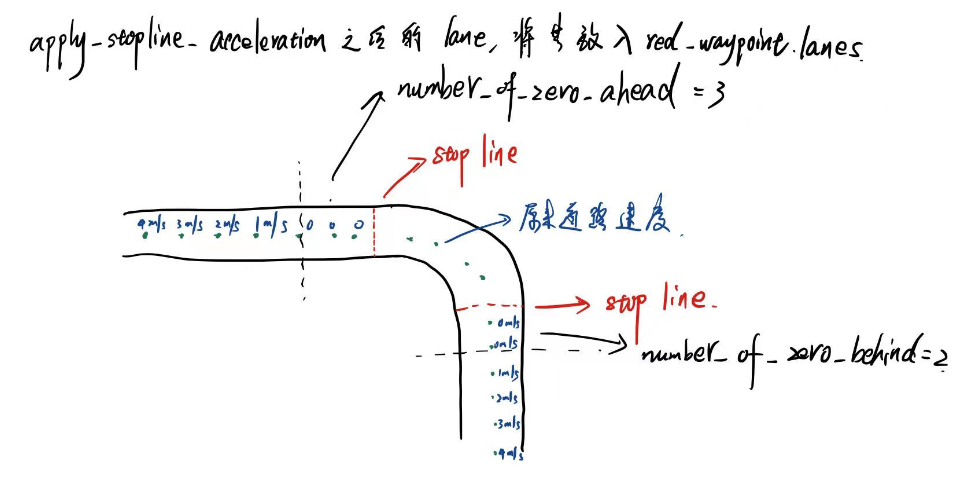 apply_stopline_acceleration 之后的 lane, 将其放入 red_waypoint.lanes.
number_of_zero_ahead = 3
stop line
4m/s 3m/s 2m/s 1m/s 0 0 0
原来道路速度.
stop line.
0m/s
0m/s
number_of_zero_behind=2
1m/s
2m/s
3m/s
4m/s